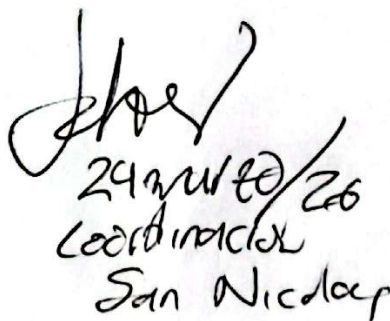 24 marzo/26
Coordinación
San Nicolas